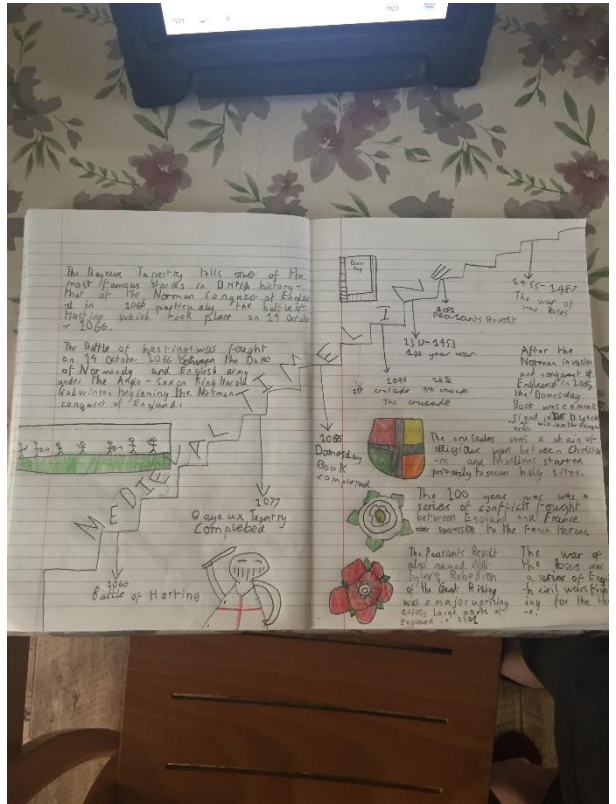 The Bayeux Tapestry tells one of the
most famous stories in British history -
that of the Norman Conquest of Englan
d in 1066 particularly the battle of
Hasting which took place on 14 Octobe
r 1066.
The Battle of hastings was fought
on 14 October 1066 between the Duke
of Normandy and English army
under the Anglo-Saxon King Harold
Godwinson beginning the Norman
conquest of England.
MEDIEVAL TIMELINE
1066
Battle of Hasting
1077
Bayeux Tapestry
completed
1086
Domesday
Book
completed
1st crusade
9th crusade
The crusade
1337-1453
100 year war
1381
Peasants Revolt
1455-1487
The war of
the Roses
After the
Norman invasion
and conquest of
England in 1066
the Domesday
Book was commis
The crusades was a chain of
religious wars between Christia
-ns and Muslims started
primarily to secure holy sites.
The 100 year was was a
series of conflicts fought
between England and France
over succession to the French throne.
The Peasants Revolt
also named Wat
Tyler's Rebellion
of the Great Rising
was a major uprising
across large parts of
England in 1381
The war of
the Roses was
a series of Engl
-h civil wars
ing for the